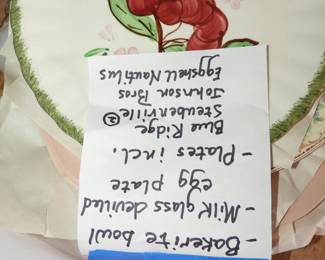 - Bakerite bowl
- Milk glass deviled
egg plate
- Plates incl.
Blue Ridge
Steubenville ②
Johnson Bros
Eggshell Nautilus